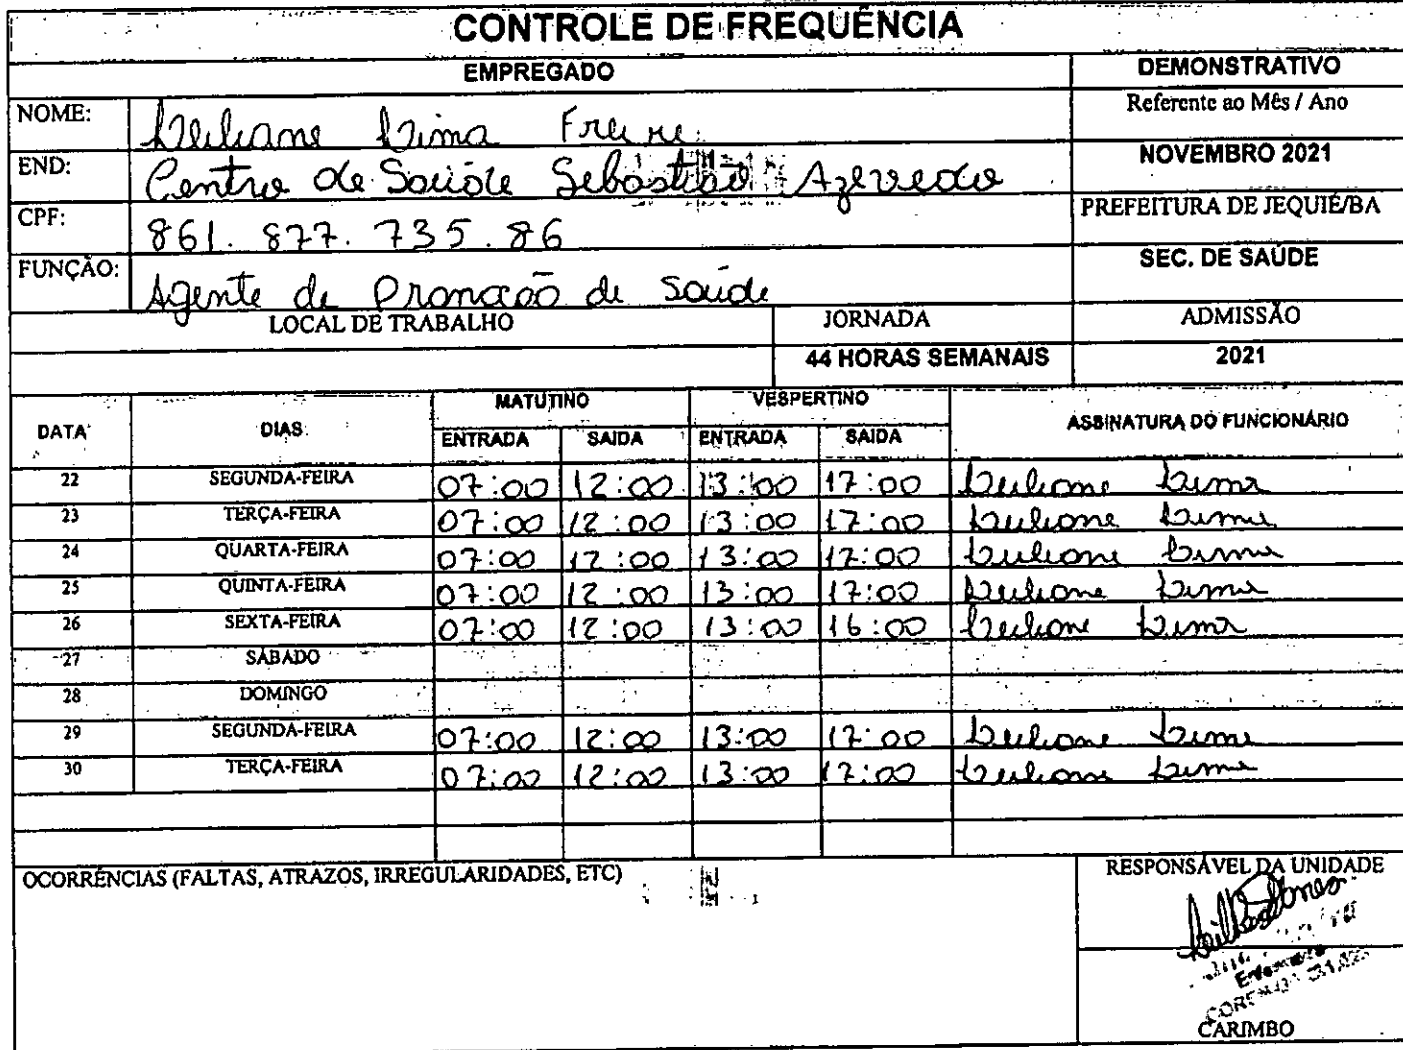 CONTROLE DE FREQUÊNCIA
EMPREGADO DEMONSTRATIVO
NOME: Lima Freire Referente ao Mês / Ano
END: Centro de Saúde Sebastião Azevedo NOVEMBRO 2021
CPF: 861. 877. 735. 86 PREFEITURA DE JEQUIÉ/BA
FUNÇÃO: Agente de Promoção de Saúde SEC. DE SAÚDE
LOCAL DE TRABALHO JORNADA ADMISSÃO
44 HORAS SEMANAIS 2021
MATUTINO VESPERTINO
DATA DIAS ASSINATURA DO FUNCIONÁRIO
ENTRADA SAIDA ENTRADA SAIDA
22 SEGUNDA-FEIRA 07:00 12:00 13:00 17:00 Lima
23 TERÇA-FEIRA 07:00 12:00 13:00 17:00 Lima
24 QUARTA-FEIRA 07:00 12:00 13:00 17:00 Lima
25 QUINTA-FEIRA 07:00 12:00 13:00 17:00 Lima
26 SEXTA-FEIRA 07:00 12:00 13:00 16:00 Lima
27 SÁBADO
28 DOMINGO
29 SEGUNDA-FEIRA 07:00 12:00 13:00 17:00 Lima
30 TERÇA-FEIRA 07:00 12:00 13:00 17:00 Lima
OCORRÊNCIAS (FALTAS, ATRAZOS, IRREGULARIDADES, ETC) RESPONSÁVEL DA UNIDADE
CARIMBO